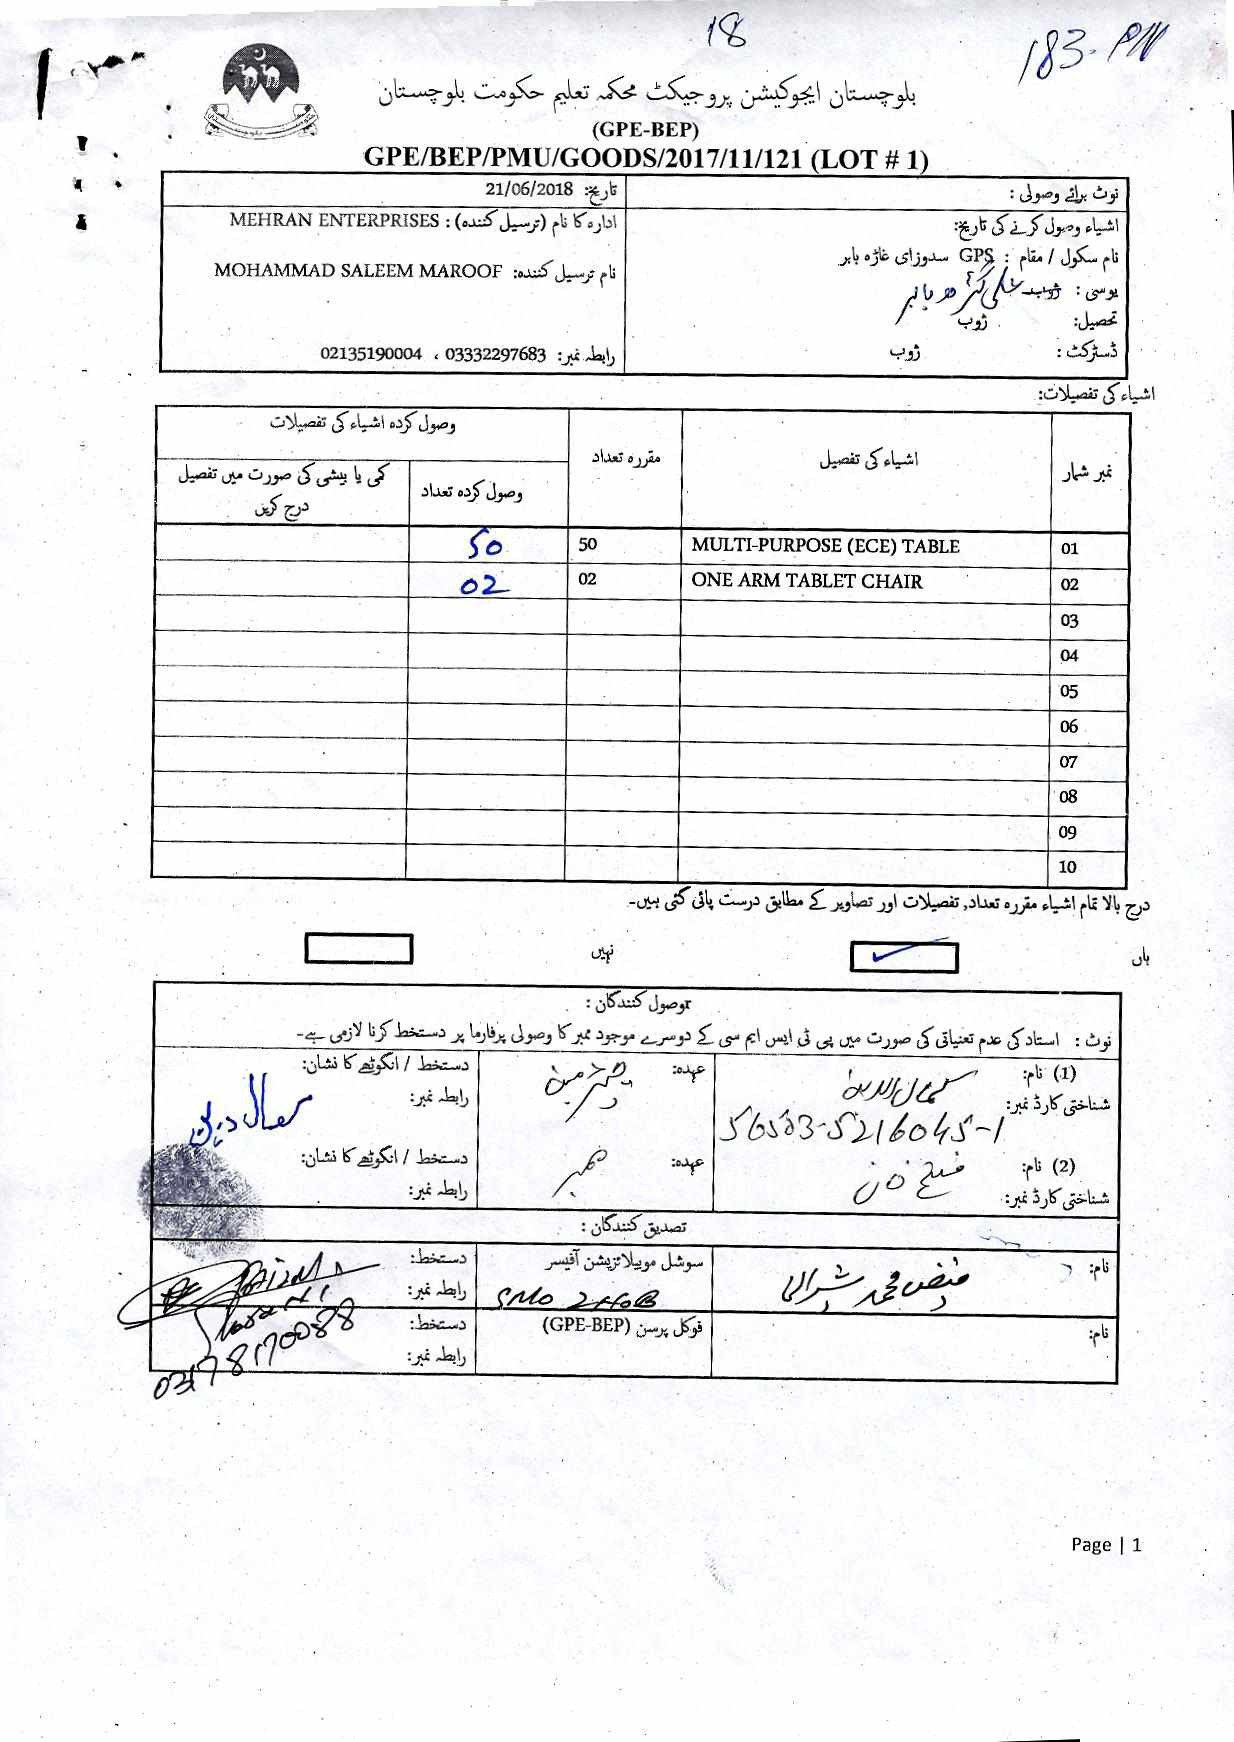 18
183-PN
بلوچستان ایجوکیشن پروجیکٹ محکمہ تعلیم حکومت بلوچستان
(GPE-BEP)
GPE/BEP/PMU/GOODS/2017/11/121 (LOT # 1)
نوٹ برائے وصولی :
تاریخ: 21/06/2018
اشیاء وصول کرنے کی تاریخ:
ادارہ کا نام (ترسیل کنندہ) : MEHRAN ENTERPRISES
نام سکول / مقام : GPS سدوزای غاڑہ بابر
نام ترسیل کنندہ: MOHAMMAD SALEEM MAROOF
یوسی : ژوب
تحصیل: ژوب
ڈسٹرکٹ : ژوب
رابطہ نمبر: 03332297683 ، 02135190004
اشیاء کی تفصیلات:
نمبر شمار
اشیاء کی تفصیل
مقررہ تعداد
وصول کردہ اشیاء کی تفصیلات
وصول کردہ تعداد
کمی یا بیشی کی صورت میں تفصیل درج کریں
01 MULTI-PURPOSE (ECE) TABLE 50 50
02 ONE ARM TABLET CHAIR 02 02
03
04
05
06
07
08
09
10
درج بالا تمام اشیاء مقررہ تعداد, تفصیلات اور تصاویر کے مطابق درست پائی گئی ہیں۔
ہاں
نہیں
وصول کنندگان :
نوٹ : استاد کی عدم تعنیاتی کی صورت میں پی ٹی ایس ایم سی کے دوسرے موجود ممبر کا وصولی پرفارما پر دستخط کرنا لازمی ہے۔
(1) نام: کمال الدین
عہدہ: چیئرمین
دستخط / انگوٹھے کا نشان: کمال دین
شناختی کارڈ نمبر: 56303-5216045-1
رابطہ نمبر:
(2) نام:
عہدہ: ممبر
دستخط / انگوٹھے کا نشان:
شناختی کارڈ نمبر:
رابطہ نمبر:
تصدیق کنندگان :
نام: فیض محمد شیرانی
سوشل موبیلائزیشن آفیسر
SMO ZHOB
دستخط:
رابطہ نمبر:
نام:
فوکل پرسن (GPE-BEP)
دستخط:
رابطہ نمبر:
03178170088
Page | 1